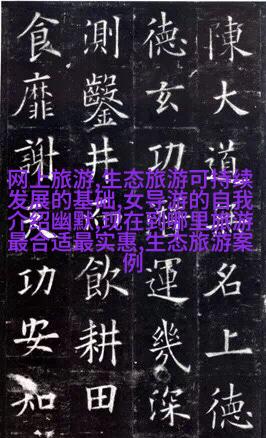 陳大道名上德
德玄功運幾深
測鑿井飲耕田
食靡謝功安知
网上旅游,生态旅游可持续
发展的基础,女导游的自我
介绍幽默,现在到哪里旅游
最合适最实惠,生态旅游案
例